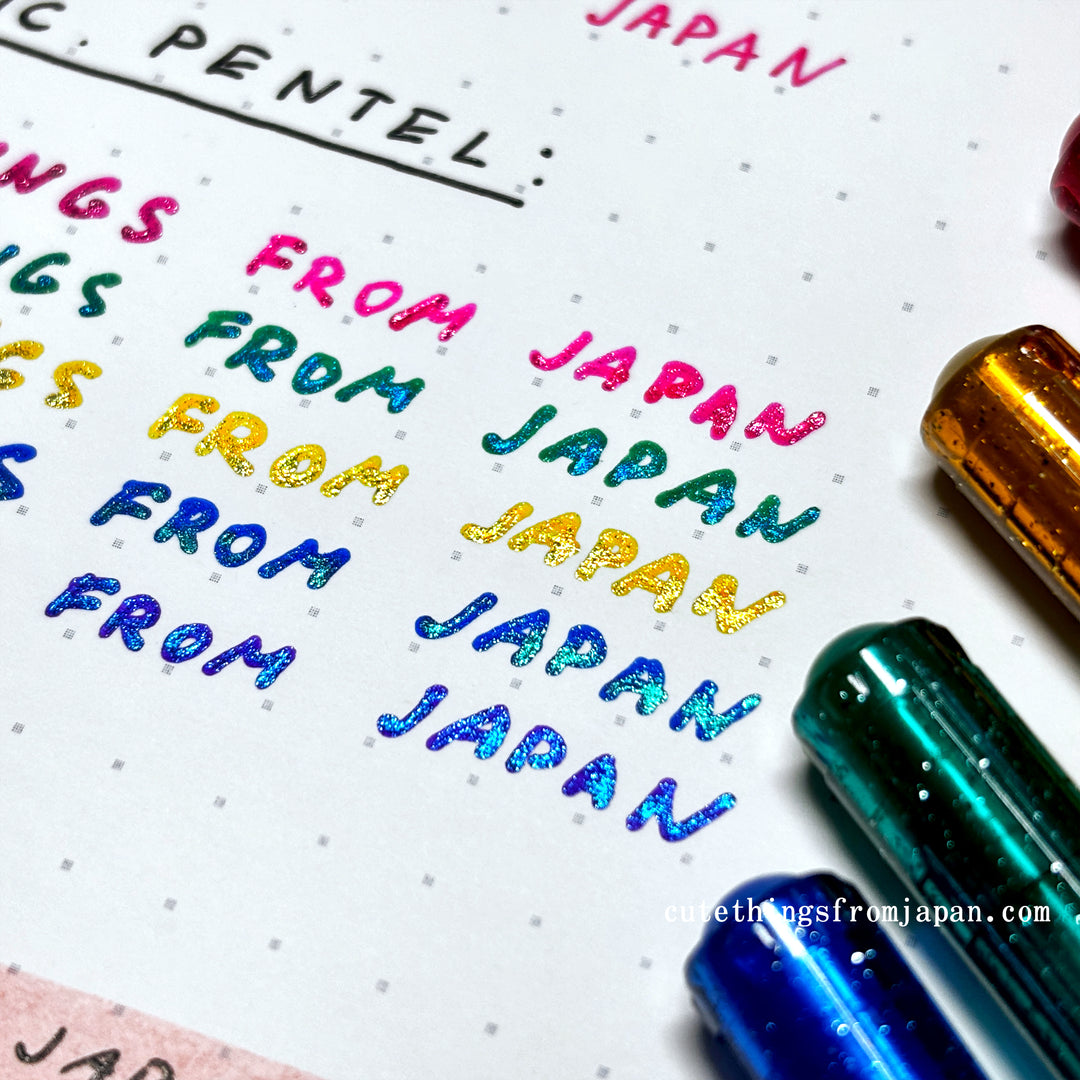 JAPAN
C. PENTEL:
INGS FROM JAPAN
NGS FROM JAPAN
GS FROM JAPAN
S FROM JAPAN
FROM JAPAN
cutethingsfromjapan.com
JAP